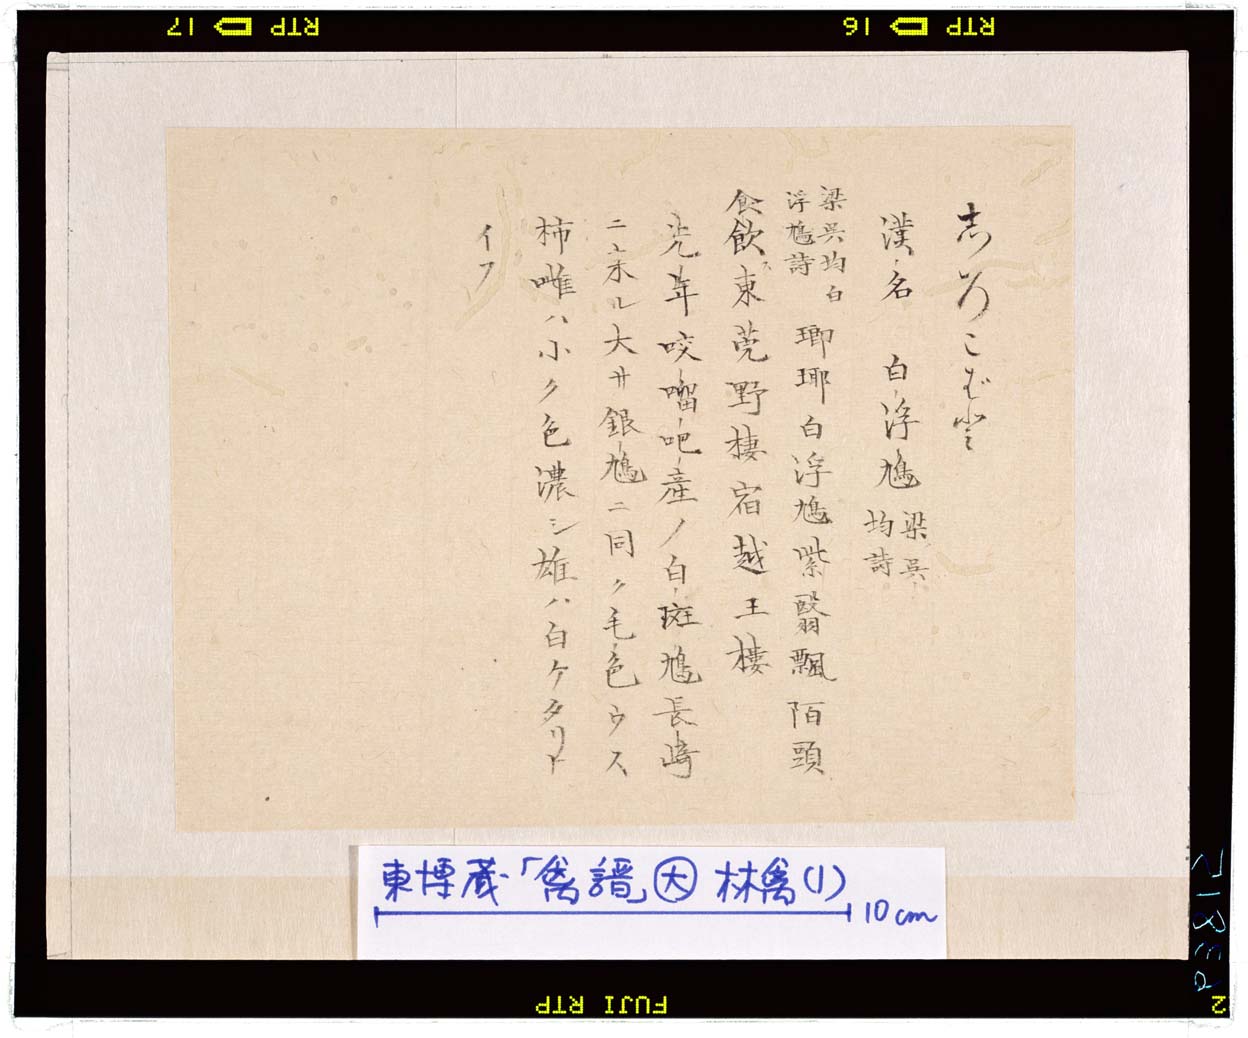 志ろこばと
漢名 白浮鳩 梁呉均詩
梁呉均白浮鳩詩 瑯琊白浮鳩紫翳飄陌頭
食飲東莞野棲宿越王樓
先年咬𠺕吧産ノ白斑鳩長崎
ニ来ル大サ銀鳩ニ同ク毛色ウス
柿雌ハ小ク色濃シ雄ハ白ケタリト
イフ
東博蔵「禽譜」大 林禽(1)
10cm
RTP 17
RTP 16
FUJI RTP
2